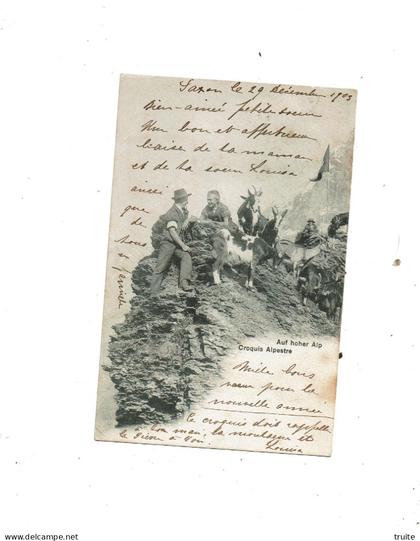 Saxon le 29 Décembre 1903
Bien-aimée petite soeur
Un bon et affectueux
baiser de la maman
et de ta soeur Louisa
ainsi
que
de
tous
famille
Auf hoher Alp
Croquis Alpestre
Mille bons
voeux pour la
nouvelle année
Ce croquis doit rappeler
à ton mari la montagne et
le Dîvin à Toi. Louisa
truite